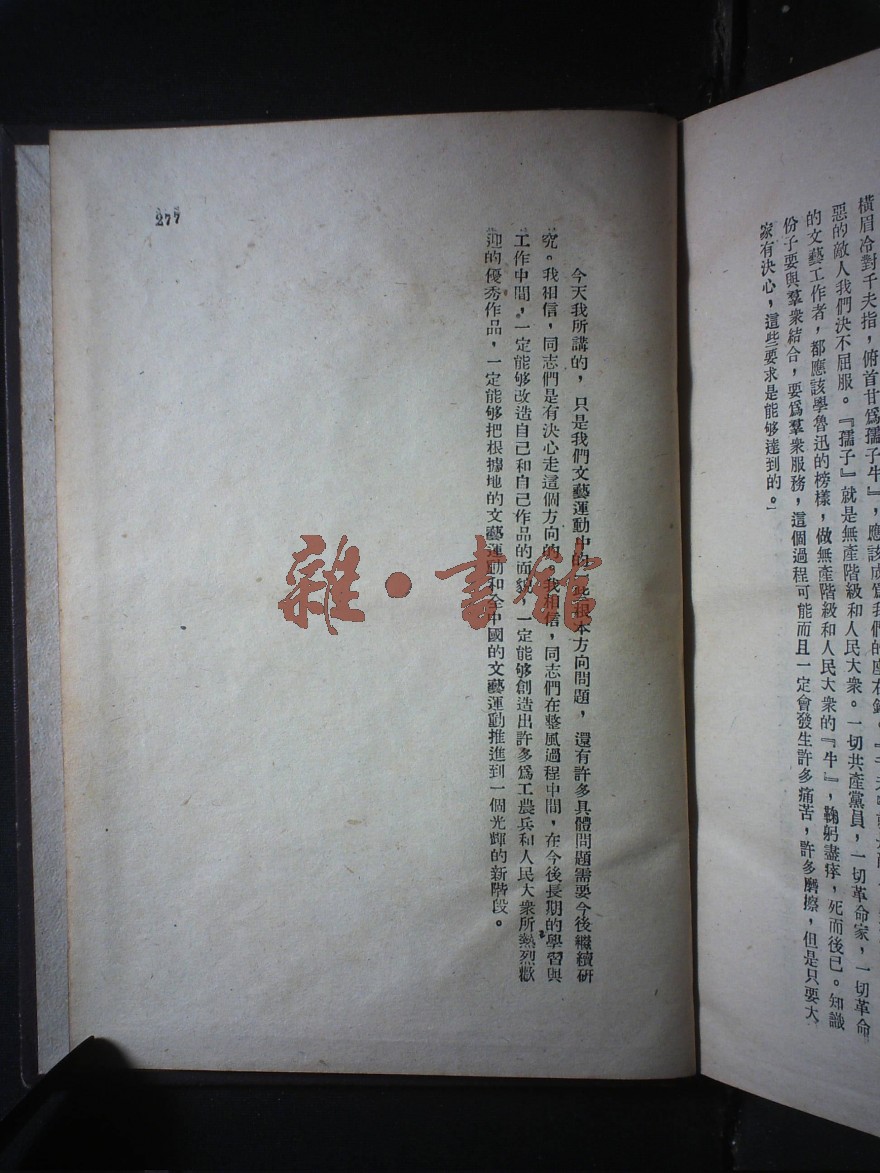 橫眉冷對千夫指，俯首甘爲孺子牛』，應該成爲我們的座右銘。
惡的敵人我們決不屈服。『孺子』就是無產階級和人民大衆。一切共產黨員，一切革命家，一切革命
的文藝工作者，都應該學魯迅的榜樣，做無產階級和人民大衆的『牛』，鞠躬盡瘁，死而後已。知識
份子要與羣衆結合，要爲羣衆服務，這個過程可能而且一定會發生許多痛苦，許多磨擦，但是只要大
家有決心，這些要求是能够達到的。
今天我所講的，只是我們文藝運動中的一些根本方向問題，還有許多具體問題需要今後繼續研
究。我相信，同志們是有決心走這個方向的。我相信，同志們在整風過程中間，在今後長期的學習與
工作中間，一定能够改造自己和自己作品的面貌，一定能够創造出許多爲工農兵和人民大衆所熱烈歡
迎的優秀作品，一定能够把根據地的文藝運動和全中國的文藝運動推進到一個光輝的新階段。
277
雜·書館